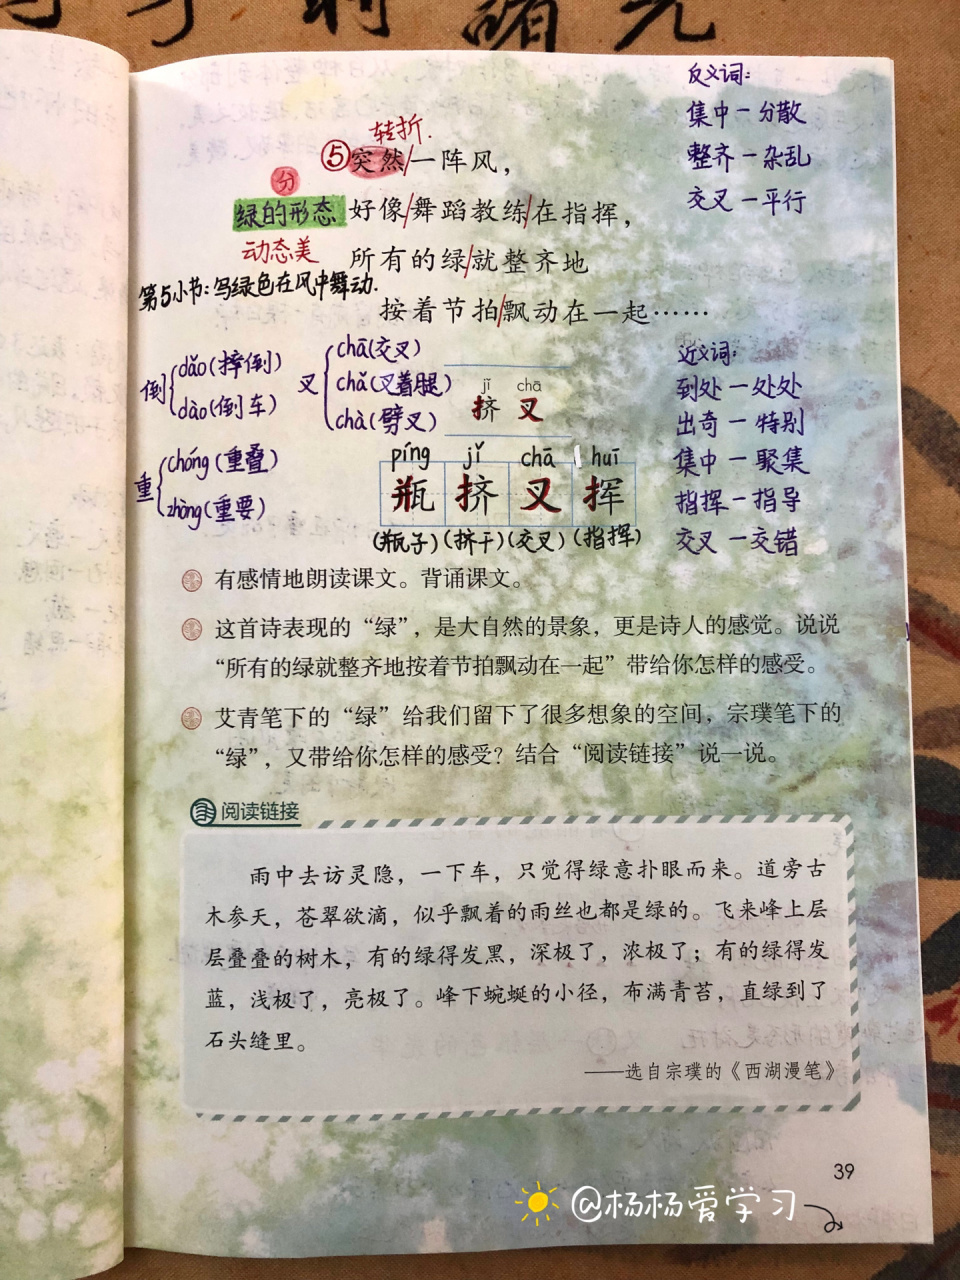 反义词:
集中一分散
整齐一杂乱
交叉一平行
转折.
⑤突然/一阵风，
分
绿的形态
好像/舞蹈教练/在指挥，
动态美
所有的绿/就整齐地
第5小节:写绿色在风中舞动.
按着节拍/飘动在一起……
倒
dǎo(摔倒)
dào(倒车)
叉
chā(交叉)
chǎ(叉着腿)
chà(劈叉)
重
chóng(重叠)
zhòng(重要)
jǐ chā
挤 叉
píng jǐ chā huī
瓶 挤 叉 挥
(瓶子)(挤干)(交叉)(指挥)
近义词:
到处一处处
出奇一特别
集中一聚集
指挥一指导
交叉一交错
有感情地朗读课文。背诵课文。
这首诗表现的“绿”，是大自然的景象，更是诗人的感觉。说说
“所有的绿就整齐地按着节拍飘动在一起”带给你怎样的感受。
艾青笔下的“绿”给我们留下了很多想象的空间，宗璞笔下的
“绿”，又带给你怎样的感受？结合“阅读链接”说一说。
阅读链接
雨中去访灵隐，一下车，只觉得绿意扑眼而来。道旁古
木参天，苍翠欲滴，似乎飘着的雨丝也都是绿的。飞来峰上层
层叠叠的树木，有的绿得发黑，深极了，浓极了；有的绿得发
蓝，浅极了，亮极了。峰下蜿蜒的小径，布满青苔，直绿到了
石头缝里。
——选自宗璞的《西湖漫笔》
39
@杨杨爱学习